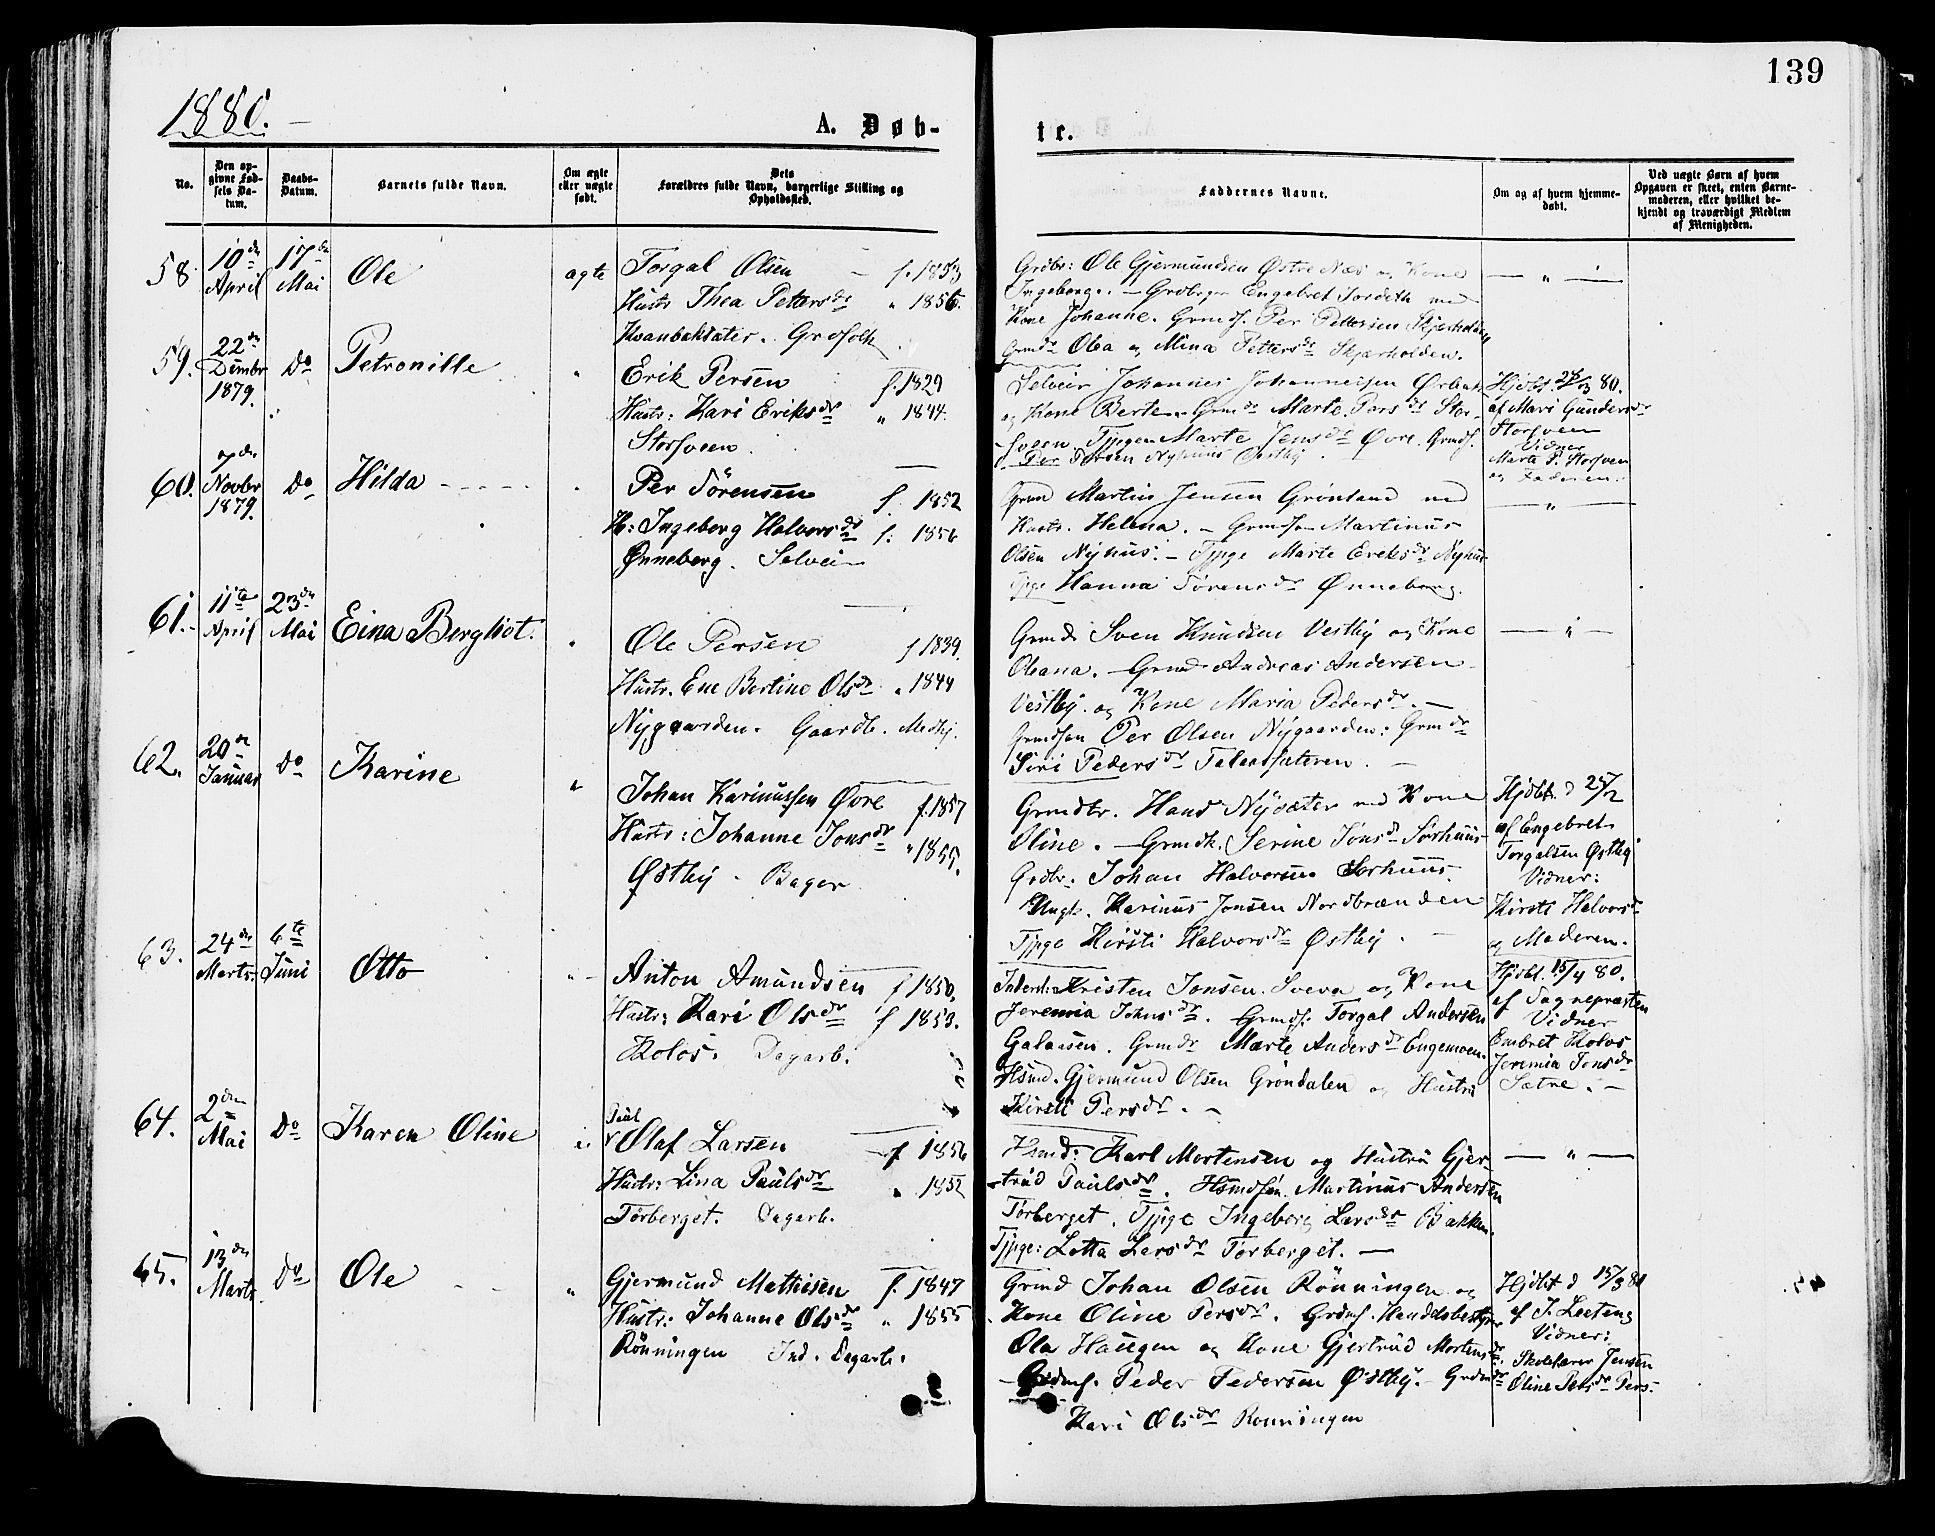 139
1880.
A. Døb-
te.
No.
Den op-
givne Fød-
sels Da-
tum.
Daabs-
Datum.
Barnets fulde Navn.
Om ægte
eller uægte
født.
Dets
Forældres fulde Navn, borgerlige Stilling og
Opholdssted.
Faddernes Navne.
Om og af hvem hjemme-
døbt.
Ved uægte Børn af hvem
Opgaven er skeet, enten Barne-
moderen, eller hvilket be-
kjendt og troværdigt Medlem
af Menigheden.
58
10de
April
17de
Mai
Ole
ægte
Torgal Olsen f. 1853
Hustr Thea Pettersdr " 1856.
Grdfolk
Grdbr: Ole Gjermundsen Østre Næs og Kone
Ingeborg. - Engebret med
Kone Johanne. Grmds. Per Pettersen
Grmdr Olea og Mina Pettersdr Skjærholden.
— " —
59.
22de
Dcmbr
1879.
Do
Petronille
"
Erik Persen f. 1829
Hustr: Kari Eriksdr " 1844.
Storsveen
Selveir Johannes Johannessen
og Kone Berte. Grmdr Marte Persdr Stor-
sveen. Tjpigen Marte Jensdr Øvre. Grmds.
Per Persen Nyhuus Østby.
Hjdbt. 28/3 80.
af Mari Gundersdr
Storsveen
Vidner
Marte P. Storsveen
og Faderen.
60.
7de
Novbr
1879.
Do
Hilda
"
Per Sörensen f. 1852
H: Ingeborg Halvorsdr f: 1856
Ønneberg. Selveier
Grmd Martin Jensen Grönland med
Hustr. Helena. - Grmdsøn Martinus
Olsen Nyhus. - Tjpge Marte Eriksdr Nyhus
Tjpge Hanna Sörensdr Ønneberg.
— " —
61.
11te
April
23de
Mai
Eina Bergliot.
"
Ole Persen f 1839.
Hustr. Ene Bertine Olsdr " 1844
Nygaarden. Gaardb. Medhj.
Grmd Sven Knudsen Vestby og Kone
Oleana. - Grmd Andreas Andersen
Vestby. og Kone Maria Pedersdr. -
Grmdsøn Per Olsen Nygaarden: Grmdr
Siri Pedersdr
— " —
62.
20de
Januar
Do
Karine
"
Johan Karinussen Øvre f. 1857
Hustr: Johanne Jonsdr " 1855.
Østby. Bager
Grmdbr. Hans Nysæter med Kone
Oline. - Grmdk. Serine Jonsdr Sörhuus
Grdbr. Johan Halvorsen Sörhuus
Ungk. Karinus Jonsen Nordbrænden
Tjpge Kirsti Halvorsdr Østby. -
Hjdbt. d 25/2
af Engebret
Torgalsen Østby
Vidner:
Kirsti Halvorsdr
og Moderen.
63.
24de
Marts
6te
Juni
Otto
"
Anton Amundsen f 1850.
Hustr: Kari Olsdr f 1853.
Kolos. Dagarb.
Kristen Jonsen. Sveen og Kone
Jeremia Johnsdr. Grmds. Torgal Andersen
Galaasen. Grmdr Marte Andersdr Engemoen.
Hsmd. Gjermund Olsen Gröndalen og Hustru
Kirsti Persdr. -
Hjdbt. 15/4 80.
af Sognepræsten
Vidner
Embret Kolos
Jeremia Jonsdr
Sætre. -
64.
2den
Mai
Do
Karen Oline
"
Paul
Olaf Larsen f 1856
Hustr: Lina Paulsdr " 1852
Törberget. Dagarb.
Hsmd: Karl Mortensen og Hustru Gjer-
trud Paulsdr. Hsmdsøn. Martinus Andersen
Törberget. Tjpge Ingeborg Larsdr Bakken.
Tjpge: Lotta Larsdr Törberget. —
— " —
65.
13de
Marts
Do
Ole
"
Gjermund Mathisen f. 1847
Hustr: Johanne Olsdr " 1855
Rönningen Ind. Dagarb.
Grmd Johan Olsen Rönningen og
Kone Oline Persdr. Grdmf. Handelsbestyrer
Ola Haugen og Kone Gjertrud Mortensdr
Grdmf. Peder Pedersen Østby. - Grdmdr
Kari Olsdr Rönningen
Hjdbt d 15/3 80
af J. Leeteng
Vidner:
Skolelærer Jensen
Oline Persdr